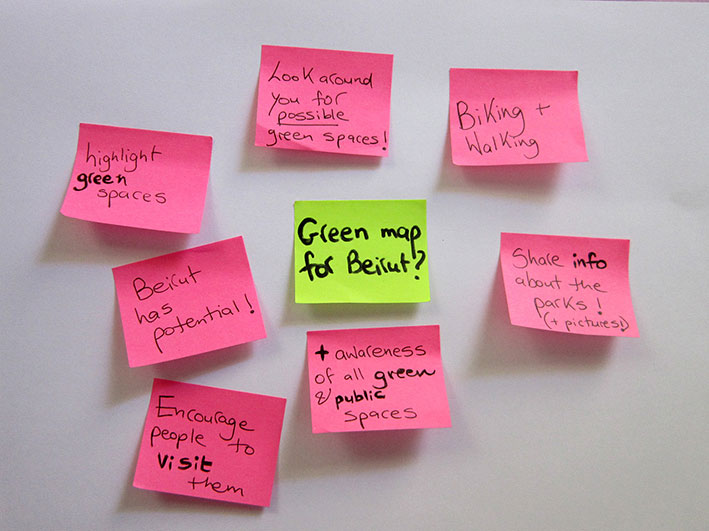 Look around
you for
possible
green spaces!
Biking +
Walking
highlight
green
spaces
Green map
for Beirut?
Share info
about the
parks!
(+ pictures!)
Beirut
has
potential!
+ awareness
of all green
& public
spaces
Encourage
people to
visit
them